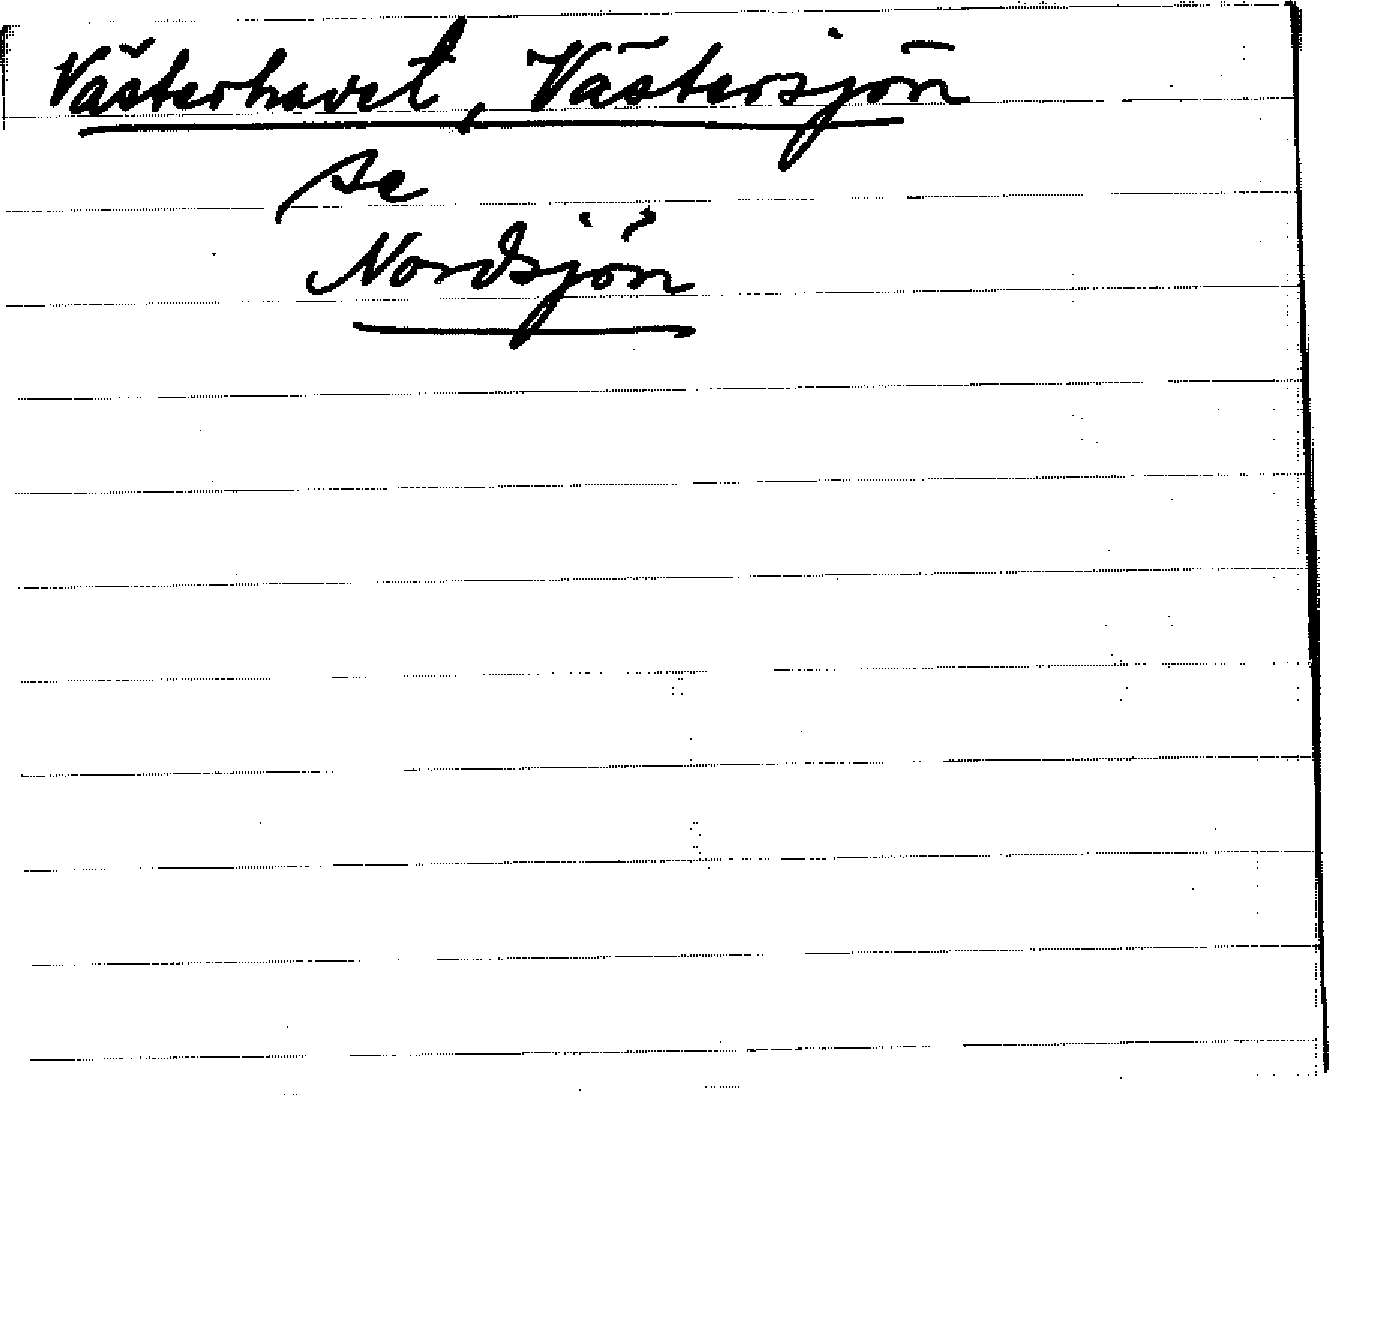 Västerhavet, Västersjön
se
Nordsjön